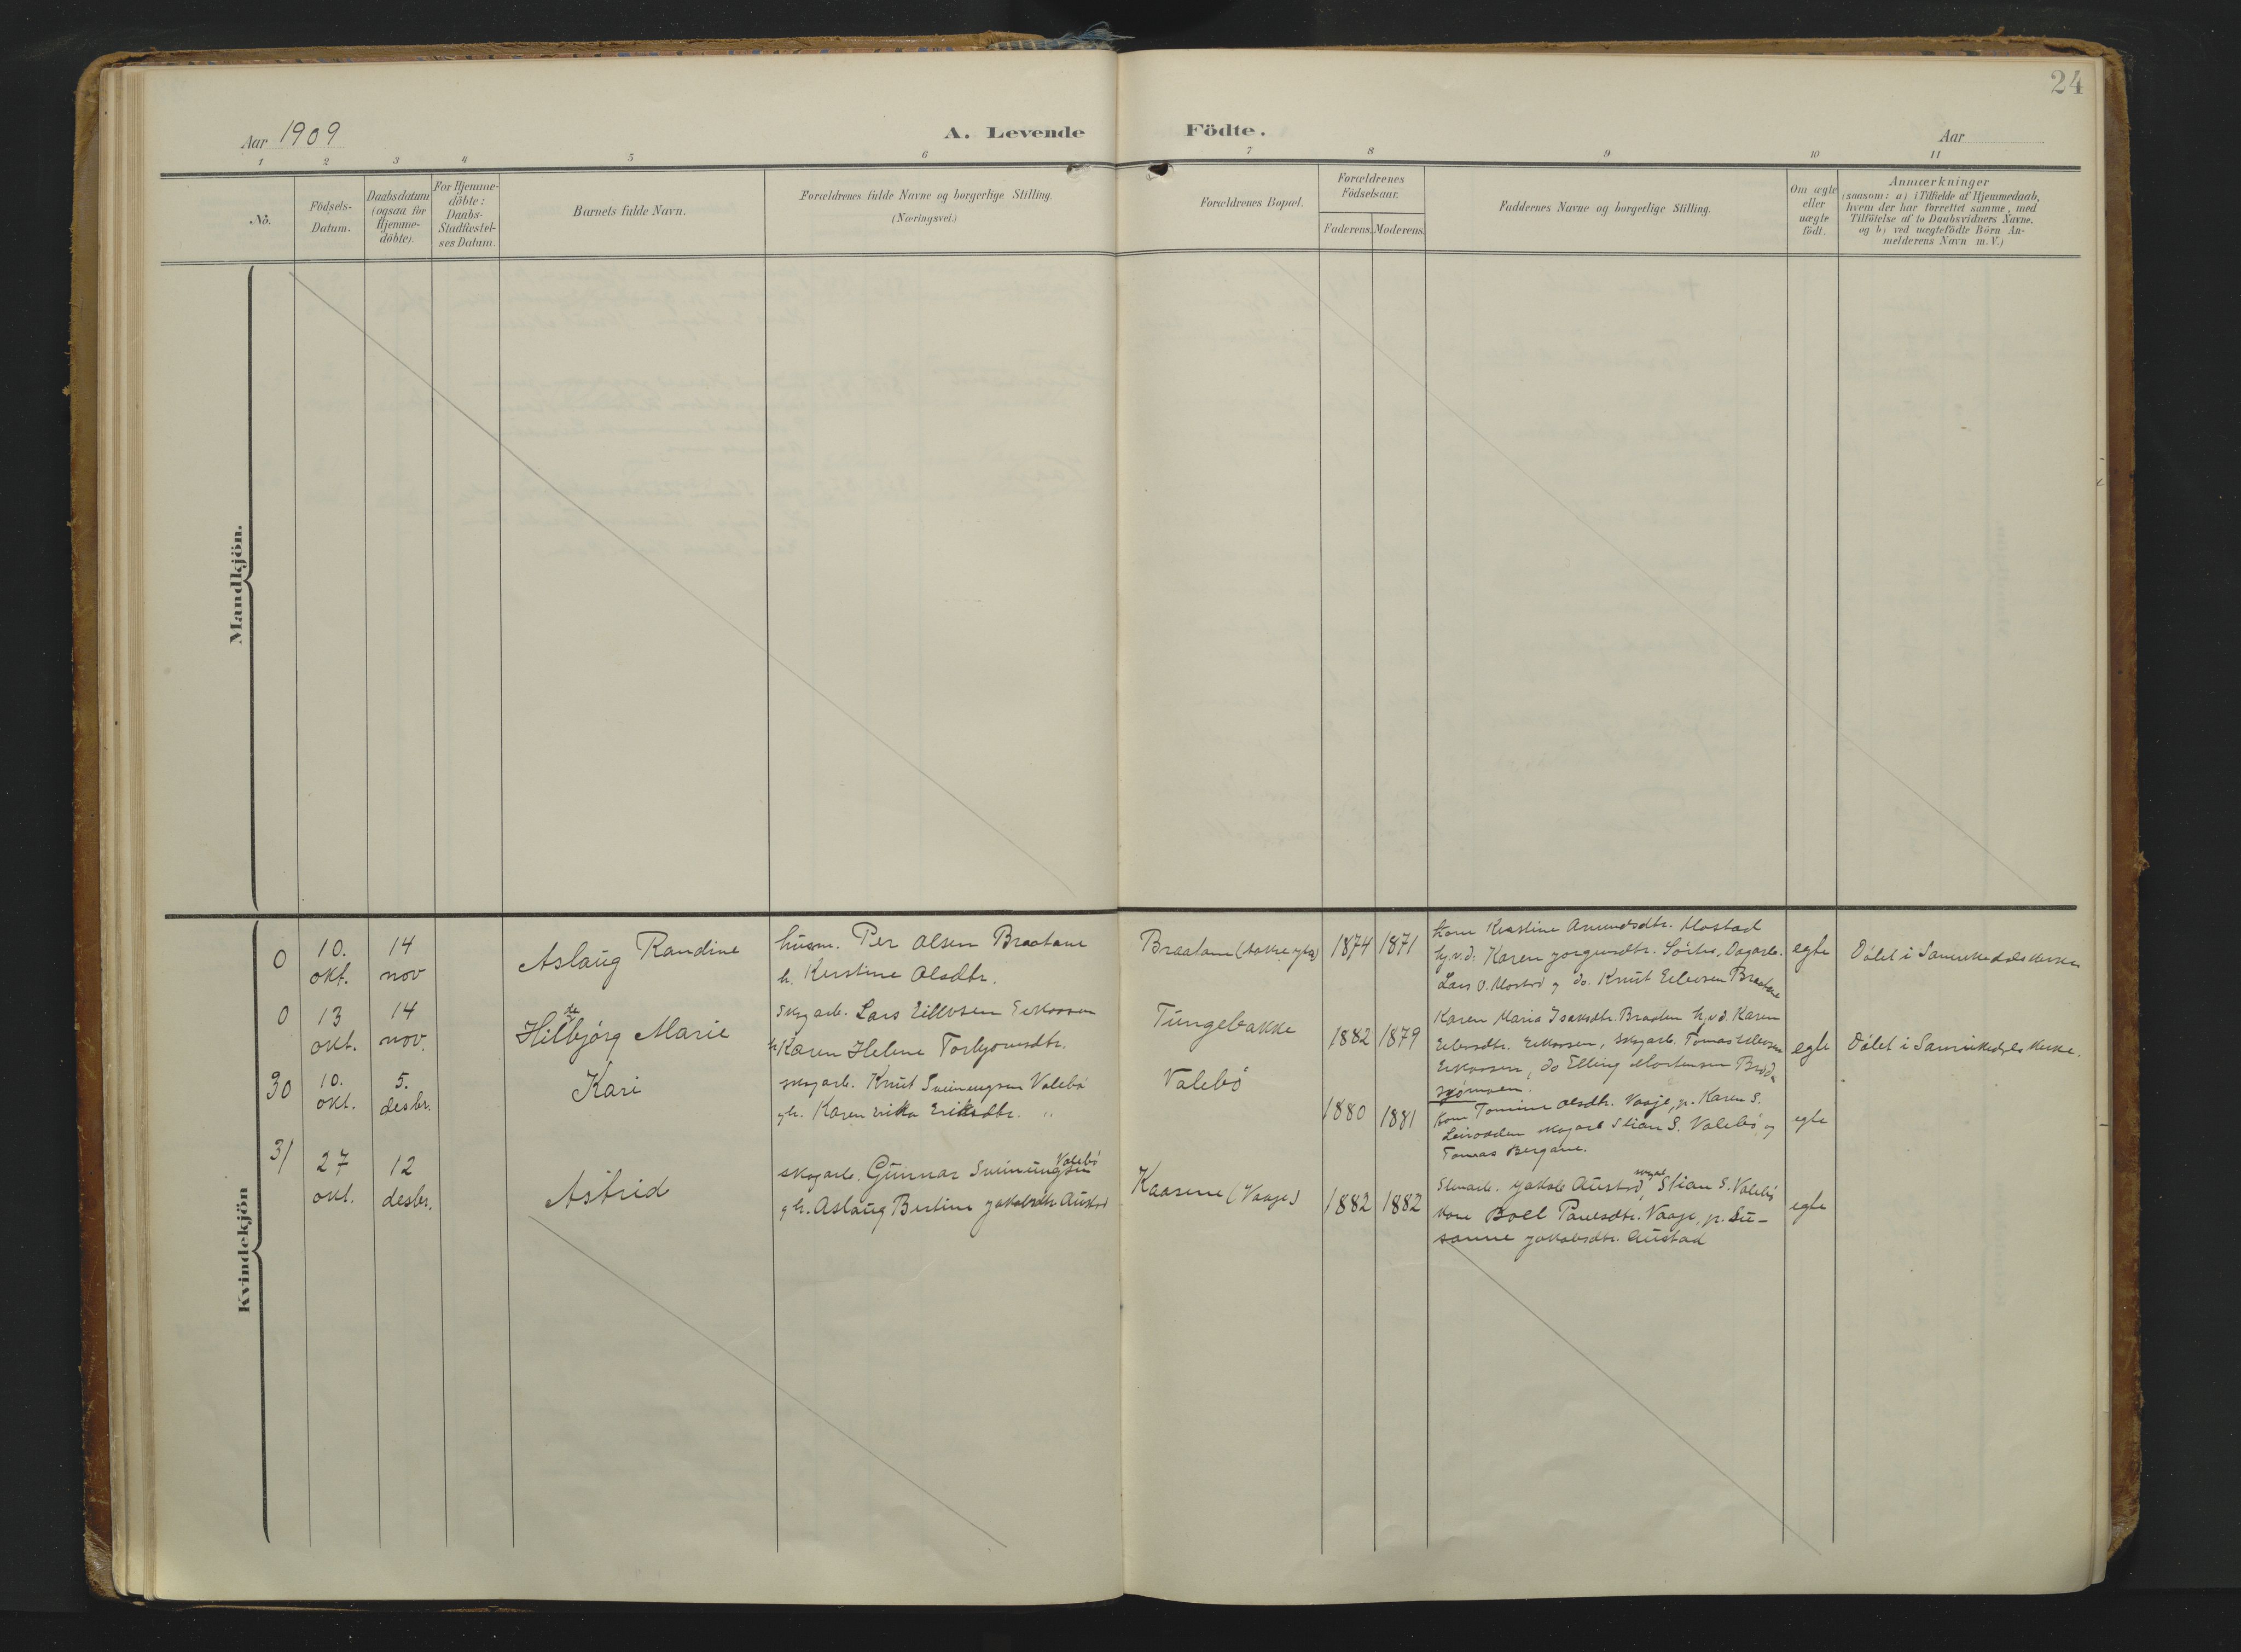 24
Aar 1909
A. Levende Födte.
Aar
1 2 3 4 5 6 7 8 9 10 11
No.
Födsels-
Datum.
Daabsdatum
(ogsaa for
Hjemme-
döbte).
For Hjemme-
döbte:
Daabs-
Stadfæstel-
ses Datum.
Barnets fulde Navn.
Forældrenes fulde Navne og borgerlige Stilling.
(Næringsvei.)
Forældrenes Bopæl.
Forældrenes
Födselsaar.
Faderens. Moderens.
Faddernes Navne og borgerlige Stilling.
Om ægte
eller
uægte
födt.
Anmærkninger
(saasom: a) i Tilfælde af Hjemmedaab,
hvem der har forrettet samme, med
Tilföielse af to Daabsvidners Navne,
og b) ved uægtefödte Börn An-
melderens Navn m. V.)
Mandkjön.
Kvindekjön
0
10.
okt.
14
nov
Aslaug Randine
husm. Per Olsen Braatane
h. Kirstine Olsdtr.
Braatane
1874
1871
Kone Kirstine Amundsdtr. Mostad
h.v.d. Karen Jorgensdtr.
Lars O. Mostad og do. Knut Eilevsen Braatane
egte
Dölet i Sannikedals kirke
0
13
okt.
14
nov.
Hildebjörg Marie
Skogarb. Lars Eilevsen
h. Karen Helene Torbjornsdtr.
Tungebakke
1882
1879
Karen Maria Isaksdtr. Braaten h.v.d. Karen
Eilevsdtr. skogarb. Tomas Eilevsen
do Elling Mortensen
egte
Dölet i Sannikedals kirke.
30
10.
okt.
5.
desbr.
Kari
skogarb. Knut Sveinungsen Valebö
g h. Karen Erika Eriksdtr. "
Valebö
1880
1881
Kone Tomine Olsdtr. Vaaje, p. Karen S.
skogarb Stian S. Valebö og
Tomas Bergane.
egte
31
27
okt.
12
desbr.
Astrid
skogarb. Gunnar Sveinungsen Valebö
g h. Aslaug Bertine Jakobsdtr. Austad
Kaasene (Vaaje)
1882
1882
Jakob Austad, skogarb. Stian S. Valebö
Kone Boel Paulsdtr. Vaaje, p. Su-
sanne Jakobsdtr. Austad
egte